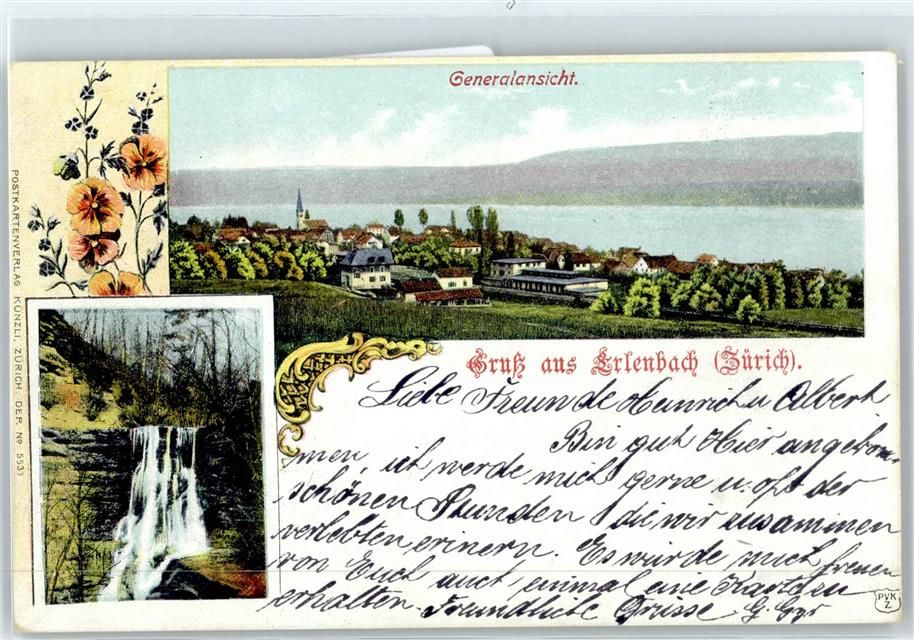 Generalansicht.
Gruß aus Erlenbach (Zürich).
Liebe Freunde Heinrich u Albert
Bin gut Hier angekom-
men, ich werde mich gerne u. oft der
schönen Stunden die wir zusammen
verlebten erinern. Es würde mich freuen
von Euch auch einmal eine Karte zu
erhalten. Freundliche Grüsse G.
POSTKARTENVERLAG KÜNZLI, ZÜRICH. DEP. No 5537
PVK
Z